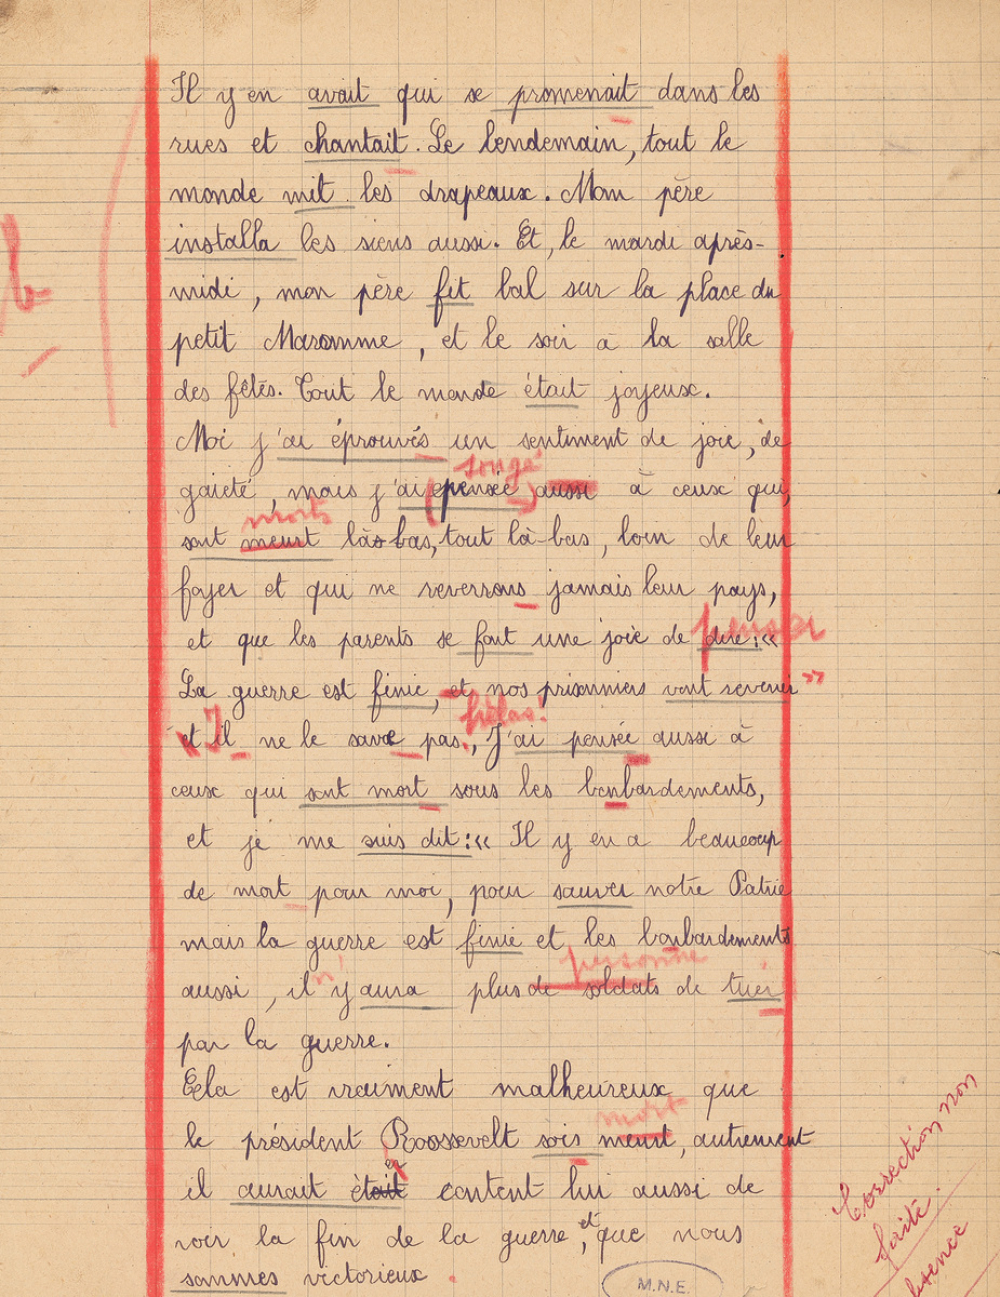 Il y en avait qui se promenait dans les
rues et chantait. Le lendemain, tout le
monde mit les drapeaux. Mon père
installa les siens aussi. Et, le mardi après-
midi, mon père fit bal sur la place du
petit Maromme, et le soir à la salle
des fêtes. Tout le monde était joyeux.
Moi j'ai éprouvés un sentiment de joie, de
songé
gaieté, mais j'ai pensée aussi à ceux qui,
morts
sont meurt là-bas, tout là-bas, loin de leur
foyer et qui ne reverrons jamais leur pays,
et que les parents se font une joie de dire : «
penser
La guerre est finie, et nos prisonniers vont revenir »
hélas!
et il ne le save pas., J'ai pensée aussi à
ceux qui sont mort sous les bonbardements,
et je me suis dit : « Il y en a beaucoup
de mort pour moi, pour sauver notre Patrie
mais la guerre est finie et les bonbardements
personne
aussi, il n'y aura plus de soldats de tués
par la guerre.
Cela est vraiment malheureux que
mort
le président Roossevelt sois meurt, autrement
il aurait était content lui aussi de
voir la fin de la guerre, et que nous
sommes victorieux.
b
Correction non
faite.
absence
M.N.E.